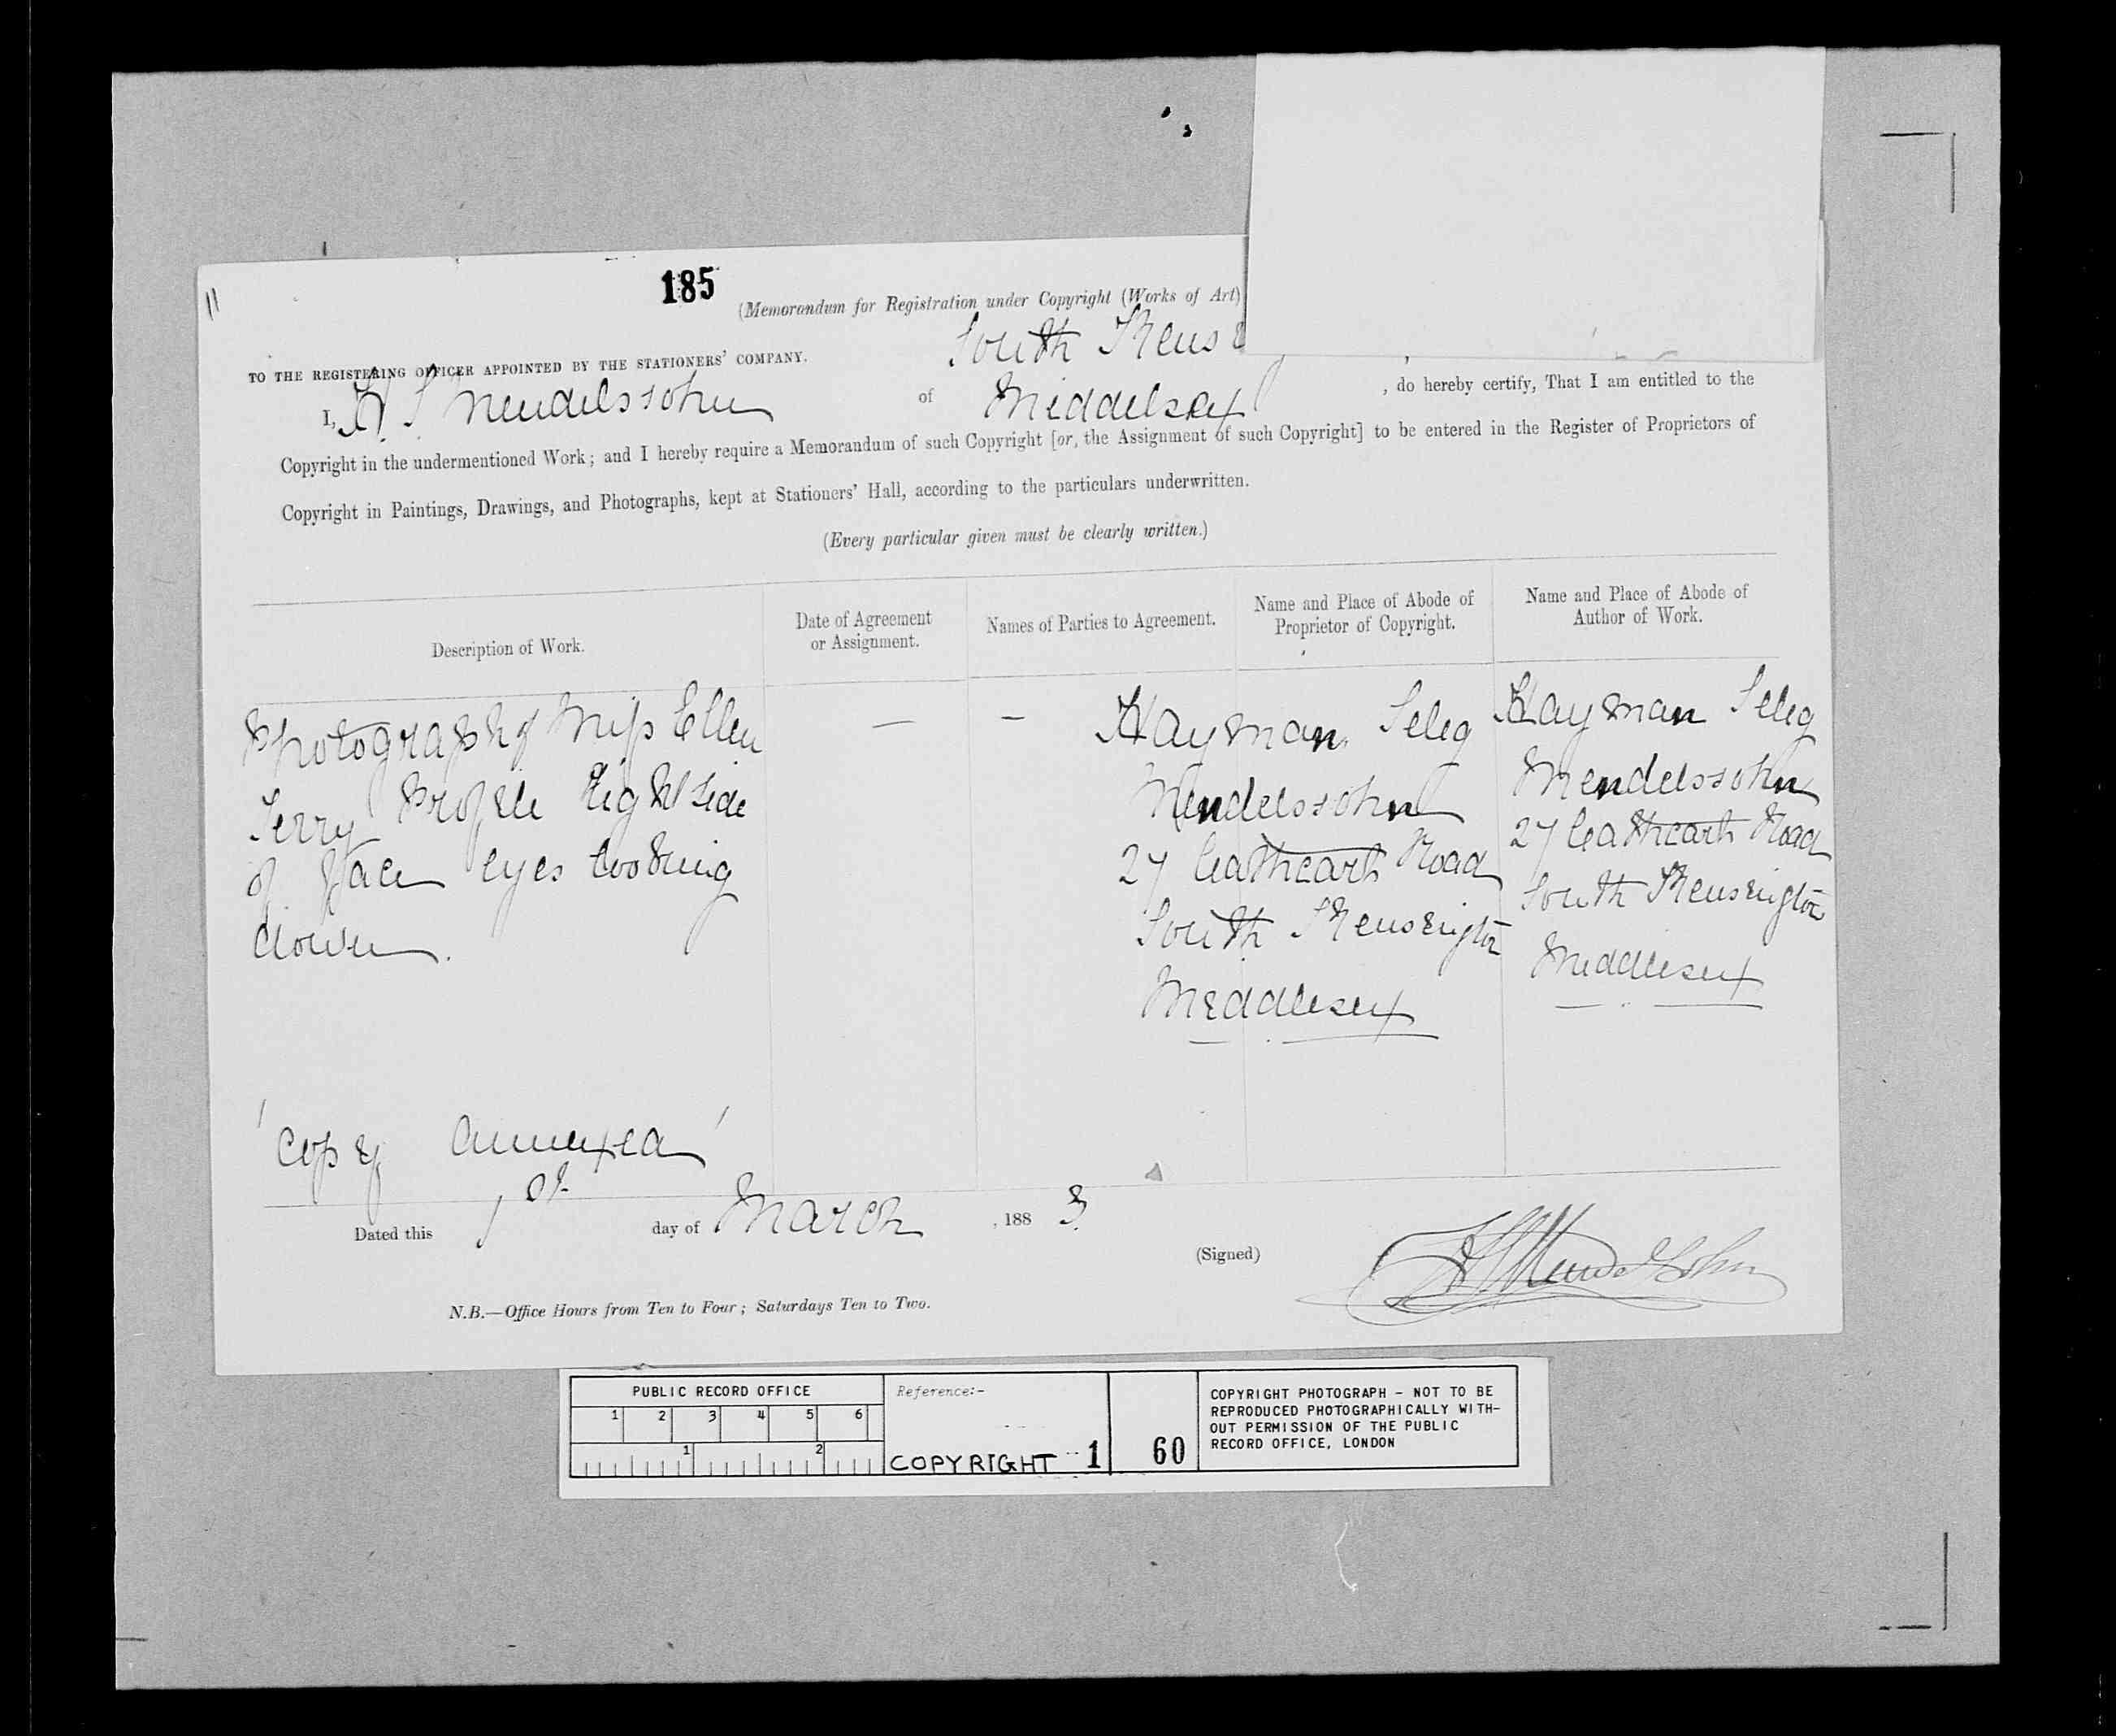 185
(Memorandum for Registration under Copyright (Works of Art)
TO THE REGISTERING OFFICER APPOINTED BY THE STATIONERS' COMPANY.
South Kens
I, H S Mendelssohn of Middelsex, do hereby certify, That I am entitled to the
Copyright in the undermentioned Work; and I hereby require a Memorandum of such Copyright [or, the Assignment of such Copyright] to be entered in the Register of Proprietors of
Copyright in Paintings, Drawings, and Photographs, kept at Stationers' Hall, according to the particulars underwritten.
(Every particular given must be clearly written.)
Description of Work.
Date of Agreement
or Assignment.
Names of Parties to Agreement.
Name and Place of Abode of
Proprietor of Copyright.
Name and Place of Abode of
Author of Work.
Photograph of Miss Ellen
Terry Profile Right side
of face eyes looking
down.
—
—
Hayman Seleg
Mendelssohn
27 Cathcart Road
South Kensington
Middlesex
Hayman Seleg
Mendelssohn
27 Cathcart Road
South Kensington
Middlesex
'Copy annexed'
Dated this 1st day of March, 1883
(Signed) H S Mendelssohn
N.B.—Office Hours from Ten to Four; Saturdays Ten to Two.
PUBLIC RECORD OFFICE
1 2 3 4 5 6
1 2
Reference:-
COPYRIGHT 1 60
COPYRIGHT PHOTOGRAPH - NOT TO BE
REPRODUCED PHOTOGRAPHICALLY WITH-
OUT PERMISSION OF THE PUBLIC
RECORD OFFICE, LONDON